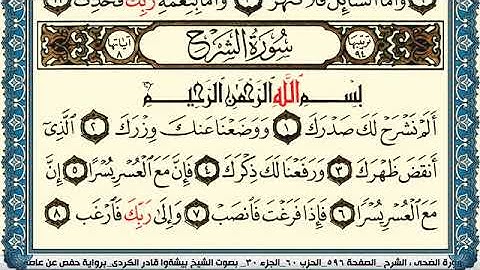 وَأَمَّا ٱلسَّآئِلَ فَلَا تَنْهَرْ ١٠ وَأَمَّا بِنِعْمَةِ رَبِّكَ فَحَدِّثْ ١١
ترتيبها ٩٤ سُورَةُ الشَّرْحِ آياتها ٨
بِسْمِ ٱللَّهِ ٱلرَّحْمَٰنِ ٱلرَّحِيمِ
أَلَمْ نَشْرَحْ لَكَ صَدْرَكَ ١ وَوَضَعْنَا عَنكَ وِزْرَكَ ٢ ٱلَّذِىٓ
أَنقَضَ ظَهْرَكَ ٣ وَرَفَعْنَا لَكَ ذِكْرَكَ ٤ فَإِنَّ مَعَ ٱلْعُسْرِ يُسْرًا ٥ إِنَّ
مَعَ ٱلْعُسْرِ يُسْرًا ٦ فَإِذَا فَرَغْتَ فَٱنصَبْ ٧ وَإِلَىٰ رَبِّكَ فَٱرْغَب ٨
سورة الضحى , الشرح _ الصفحة ٥٩٦_ الحزب ٦٠_ الجزء ٣٠_ بصوت الشيخ بيشةوا قادر الكردى_ برواية حفص عن عاصم